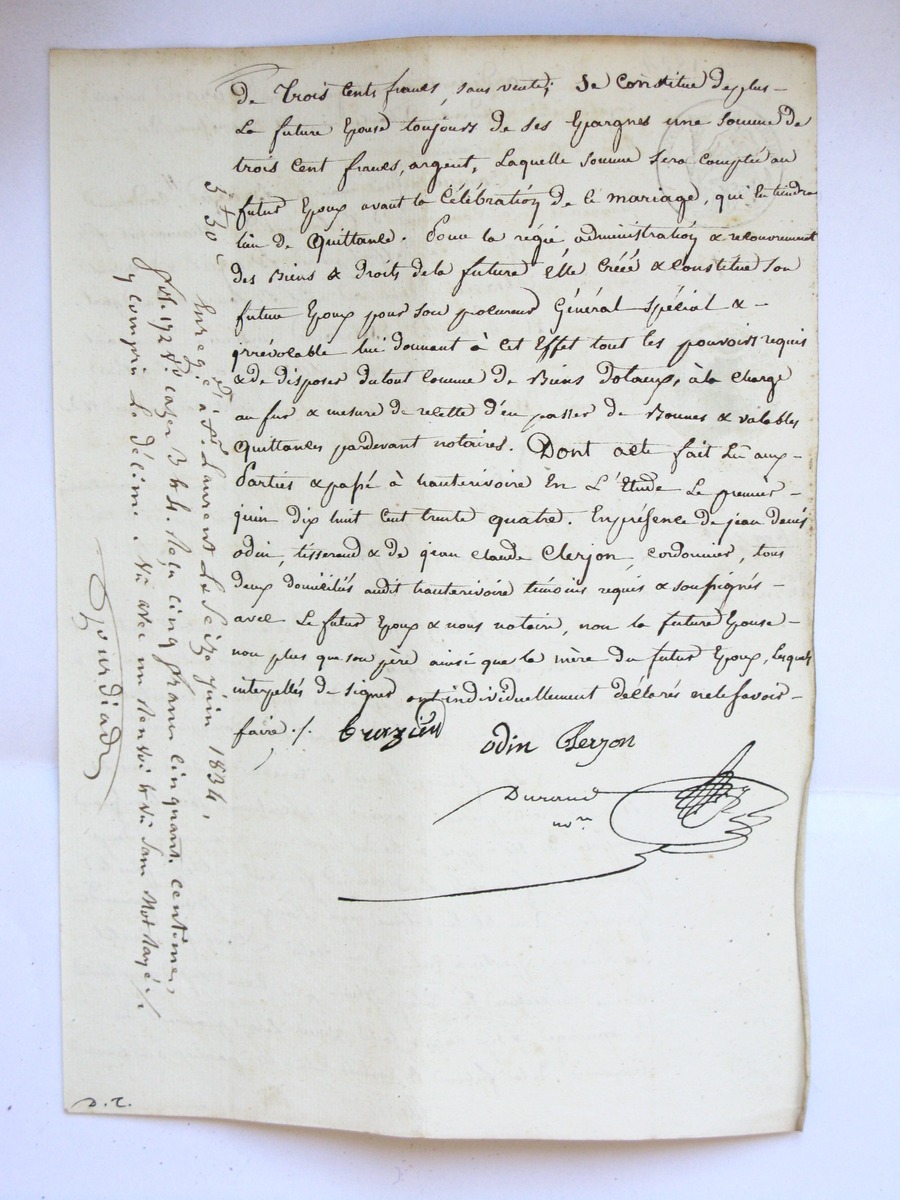 De trois Cents francs, sans vente; Se Constitue Deplus -
La future Epouse toujours de ses Epargnes une Somme De
trois Cent francs, argent, Laquelle Somme Sera Comptée au
futur Epoux avant la Célébration de le mariage, qui en tiendra
lieu de Quittance. Pour la régie, administration & recouvrement
des Biens & Droits de la future Elle Créé & Constitue Son
futur Epoux pour Son procureur Général Spécial & -
irrévocable lui donnant à Cet Effet tout les pouvoirs requis
& de disposer du tout Comme De Biens Dotaux, à la Charge
au fur & mesure de recette d'en passer de Bonnes & valables
Quittances pardevant notaires. Dont acte fait Lu aux -
Parties & passé à hauterivoire En L'Etude Le premier -
juin dix huit Cent trente quatre. En présence De jean Denis
odin, tisserand & de jean Claude Clerjon, cordonnier, tous
deux Domiciliés audit hauterivoire témoins requis & soussignés -
avec Le futur Epoux & nous notaire, non la future Epouse -
non plus que son père ainsi que la mère du futur Epoux, Lesquels
interpellés De Signer ont individuellement déclarés ne le Savoir -
faire ./.
odin Clerjon
Durand
no.re
5 f 50 c
Enregé à St. Laurent Le Seize juin 1834,
fol. 192 Vo. Cases 3 & 4. Reçu Cinq francs Cinquante centimes
y compris Le décime. Vu avec un Renvoi & Vu Sans Mot Rayé ./.
D. T.